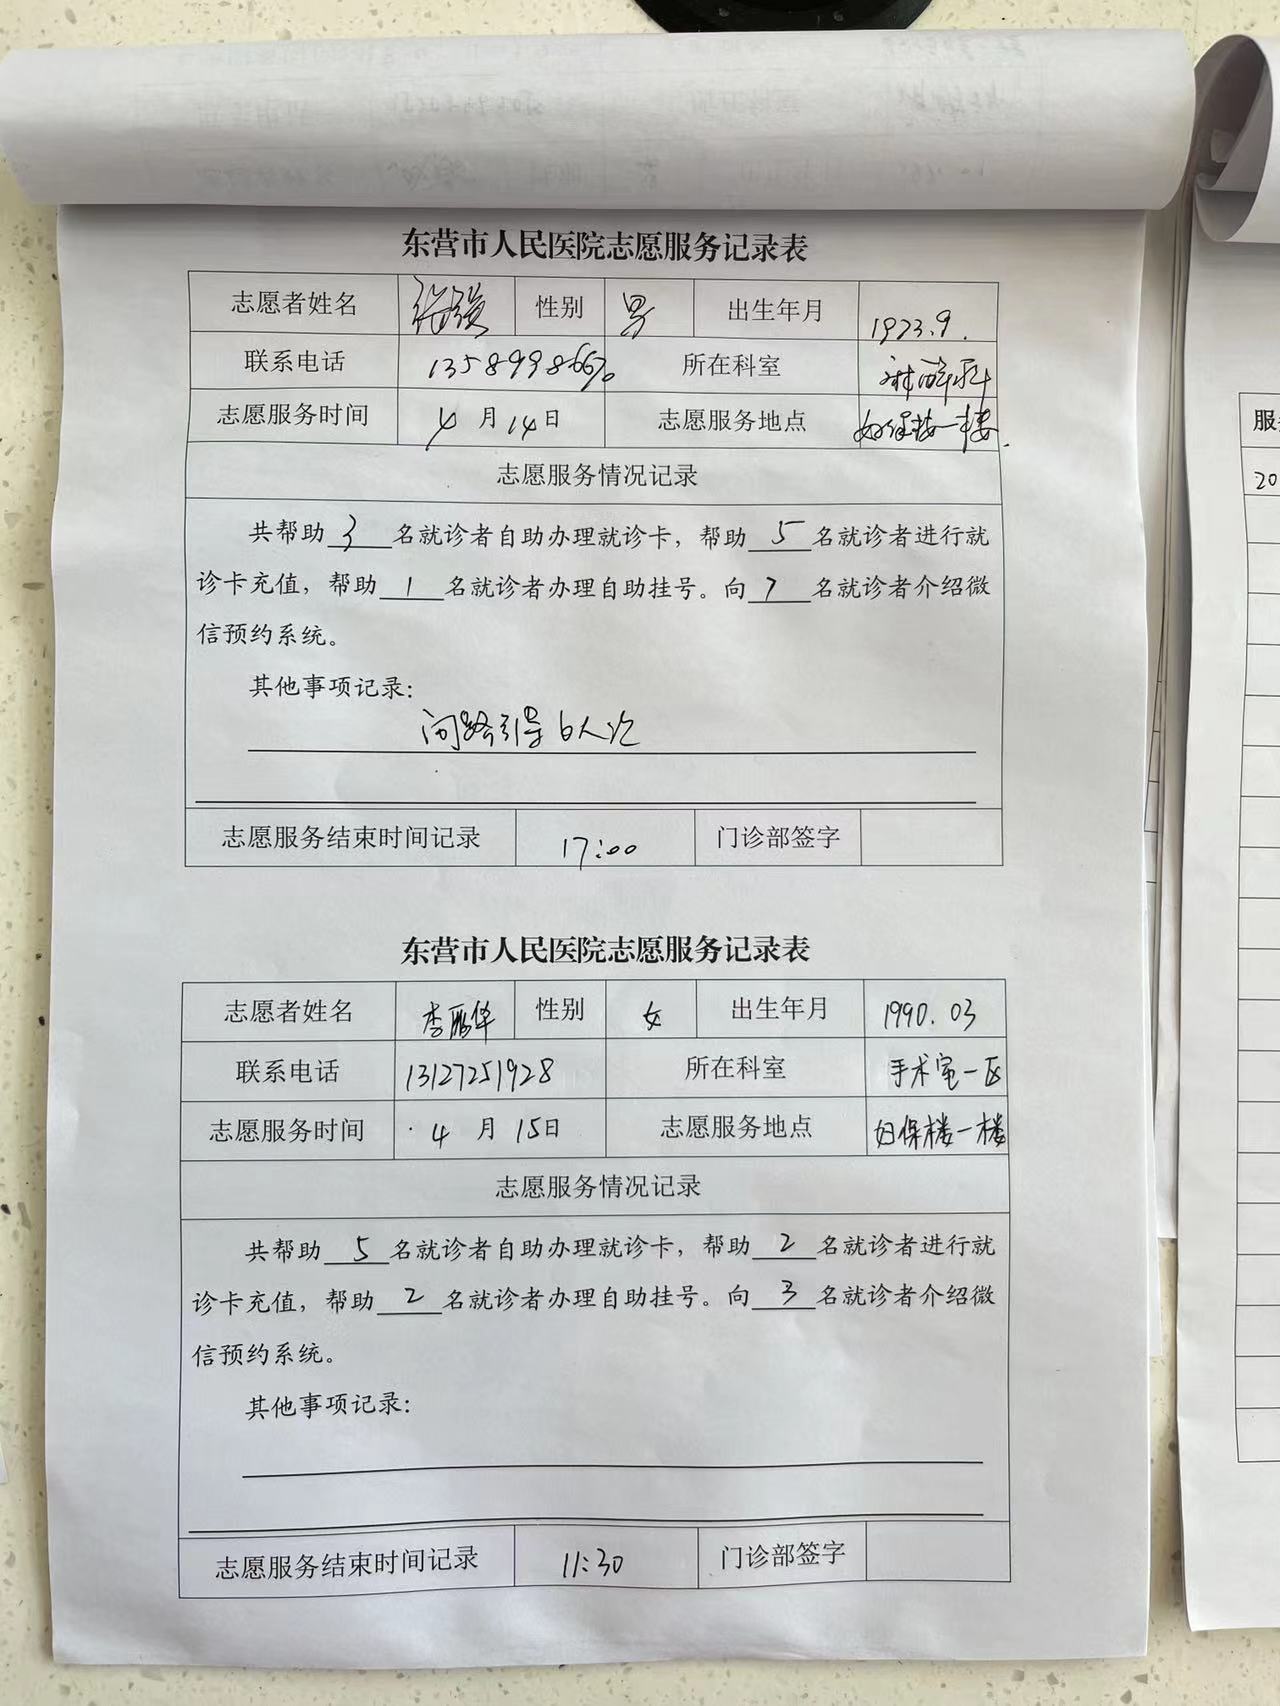 东营市人民医院志愿服务记录表
志愿者姓名 张强 性别 男 出生年月 1973.9.
联系电话 所在科室 麻醉科
志愿服务时间 4月14日 志愿服务地点 妇保楼一楼
志愿服务情况记录
共帮助3名就诊者自助办理就诊卡，帮助5名就诊者进行就
诊卡充值，帮助1名就诊者办理自助挂号。向7名就诊者介绍微
信预约系统。
其他事项记录：
问路引导6人次
志愿服务结束时间记录 17:00 门诊部签字
东营市人民医院志愿服务记录表
志愿者姓名 李丽华 性别 女 出生年月 1990.03
联系电话 13127251928 所在科室 手术室一区
志愿服务时间 4月15日 志愿服务地点 妇保楼一楼
志愿服务情况记录
共帮助5名就诊者自助办理就诊卡，帮助2名就诊者进行就
诊卡充值，帮助2名就诊者办理自助挂号。向3名就诊者介绍微
信预约系统。
其他事项记录：
志愿服务结束时间记录 11:30 门诊部签字
服
20